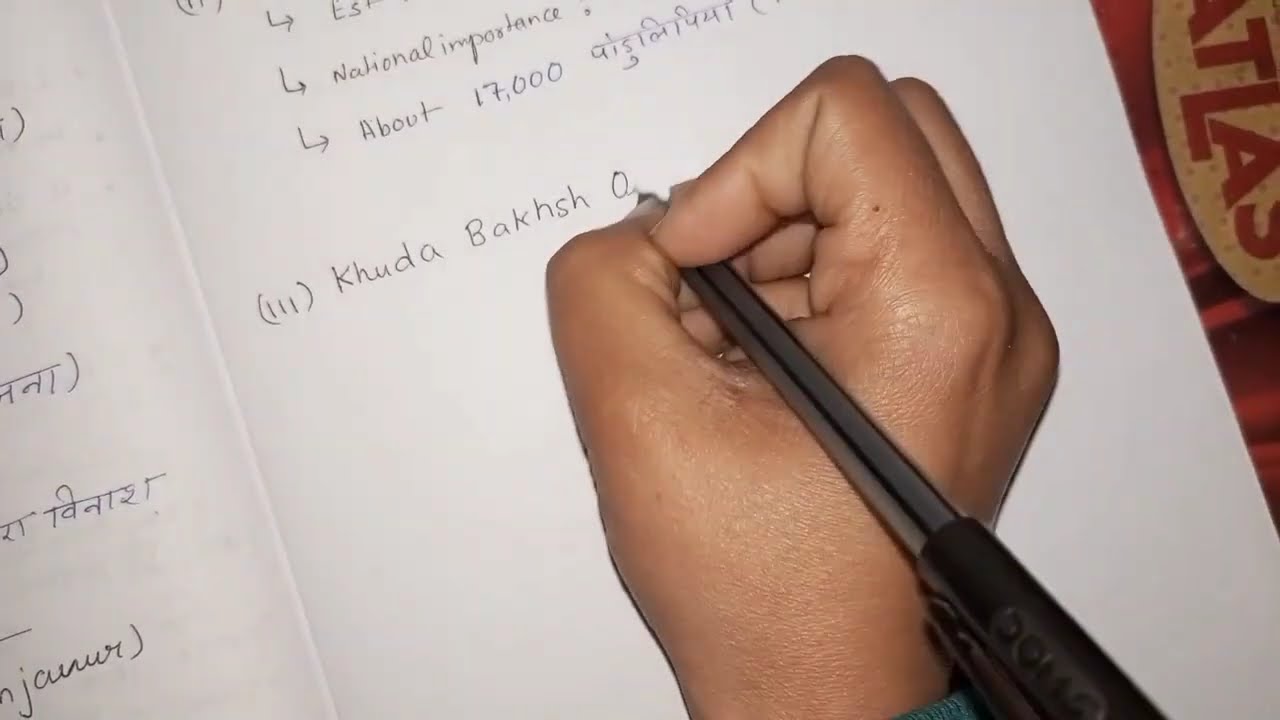 ↳ Est
↳ National importance :
↳ About 17,000 पांडुलिपियां (
(iii) Khuda Bakhsh O
विनाश
ATLAS